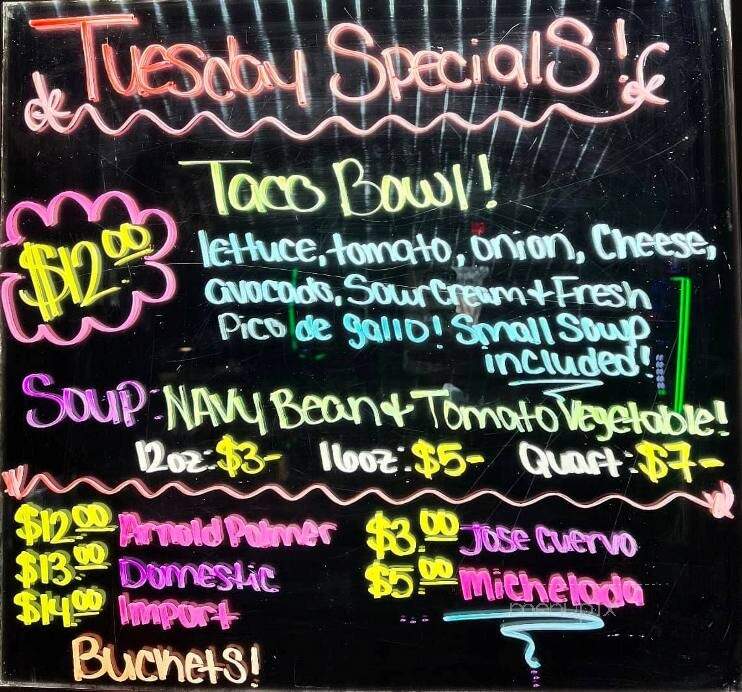 Tuesday Specials!
Taco Bowl!
$12.00
lettuce, tomato, onion, Cheese,
avocado, Sour Cream + Fresh
Pico de gallo! Small Soup
included!
Soup: NAVY Bean & Tomato Vegetable!
12oz: $3- 16oz: $5- Quart: $7-
$12.00 Arnold Palmer
$13.00 Domestic
$14.00 Import
Buckets!
$3.00 Jose Cuervo
$5.00 Michelada
menupix